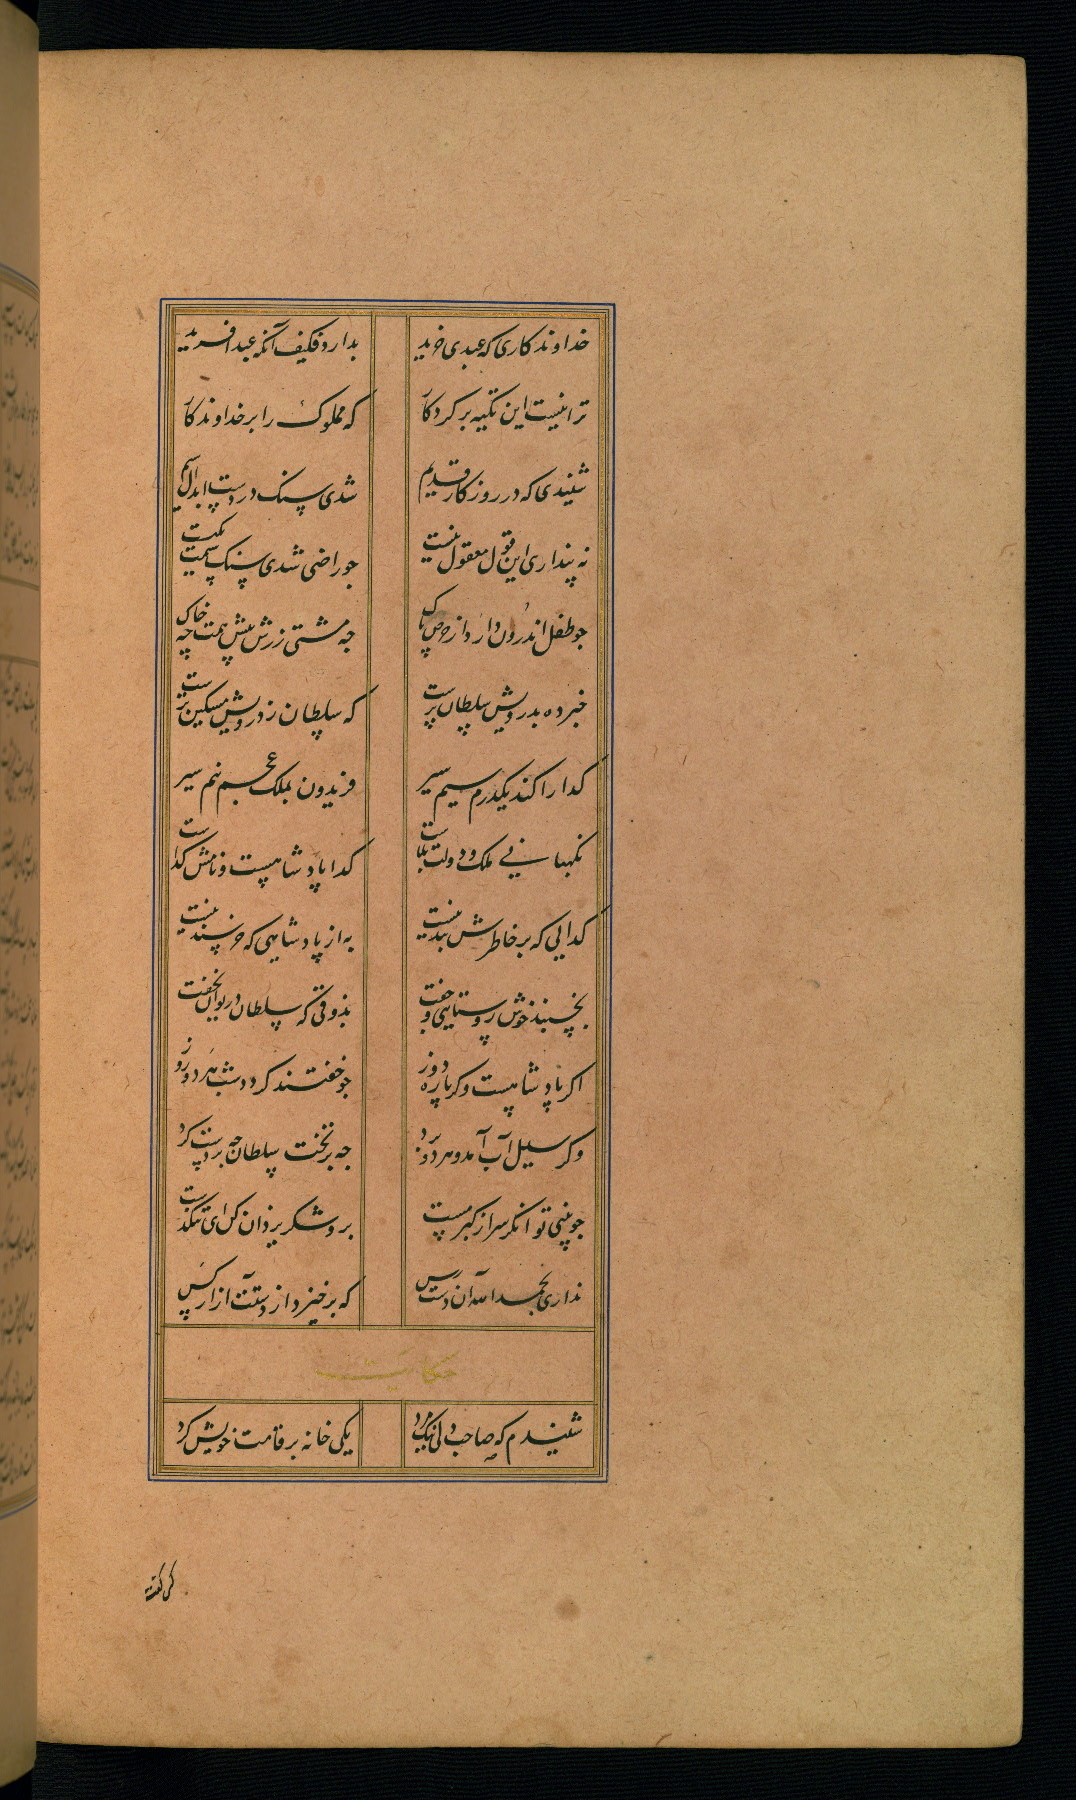 خداوند کاری که عبدی خرید بدارد فکیف آنکه عبد آفرید
ترا نیست این تکیه بر کردکار که مملوک را بر خداوند کار
شنیدی که در روزکار قدیم شدی سنک در دست ابدال سیم
نه پنداری این قول معقول نیست جو راضی شدی سنک سیمت یکیست
جو طفل اندرون دارد از حرص پاک جه مشتی زرش پیش همت چه خاک
خبر ده بدرویش سلطان پرست که سلطان ز درویش مسکین ترست
کدا را کند یکدرم سیم سیر فریدون بملک عجم نیم سیر
نکهبانی ملک و دولت بلاست کدا پادشاهست و نامش کداست
کدایی که بر خاطرش بند نیست به از پادشاهی که خرسند نیست
بخسبند خوش روستایی و جفت بذوقی که سلطان در ایوان نخفت
اکر پادشاهست و کر پاره دوز جو خفتند کردد شب هر دو روز
وکر سیل آب آمد و هر دو برد جه بر تخت سلطان جه بر دست کرد
جو بینی توانکر سر از کبر مست برو شکر یزدان کن ای تنکدست
نداری بحمد الله آن دست رس که بر خیزد از دستت آزار کس
حکایت
شنیدم که صاحب دلی نیک مرد یکی خانه بر قامت خویش کرد
کسی کفت